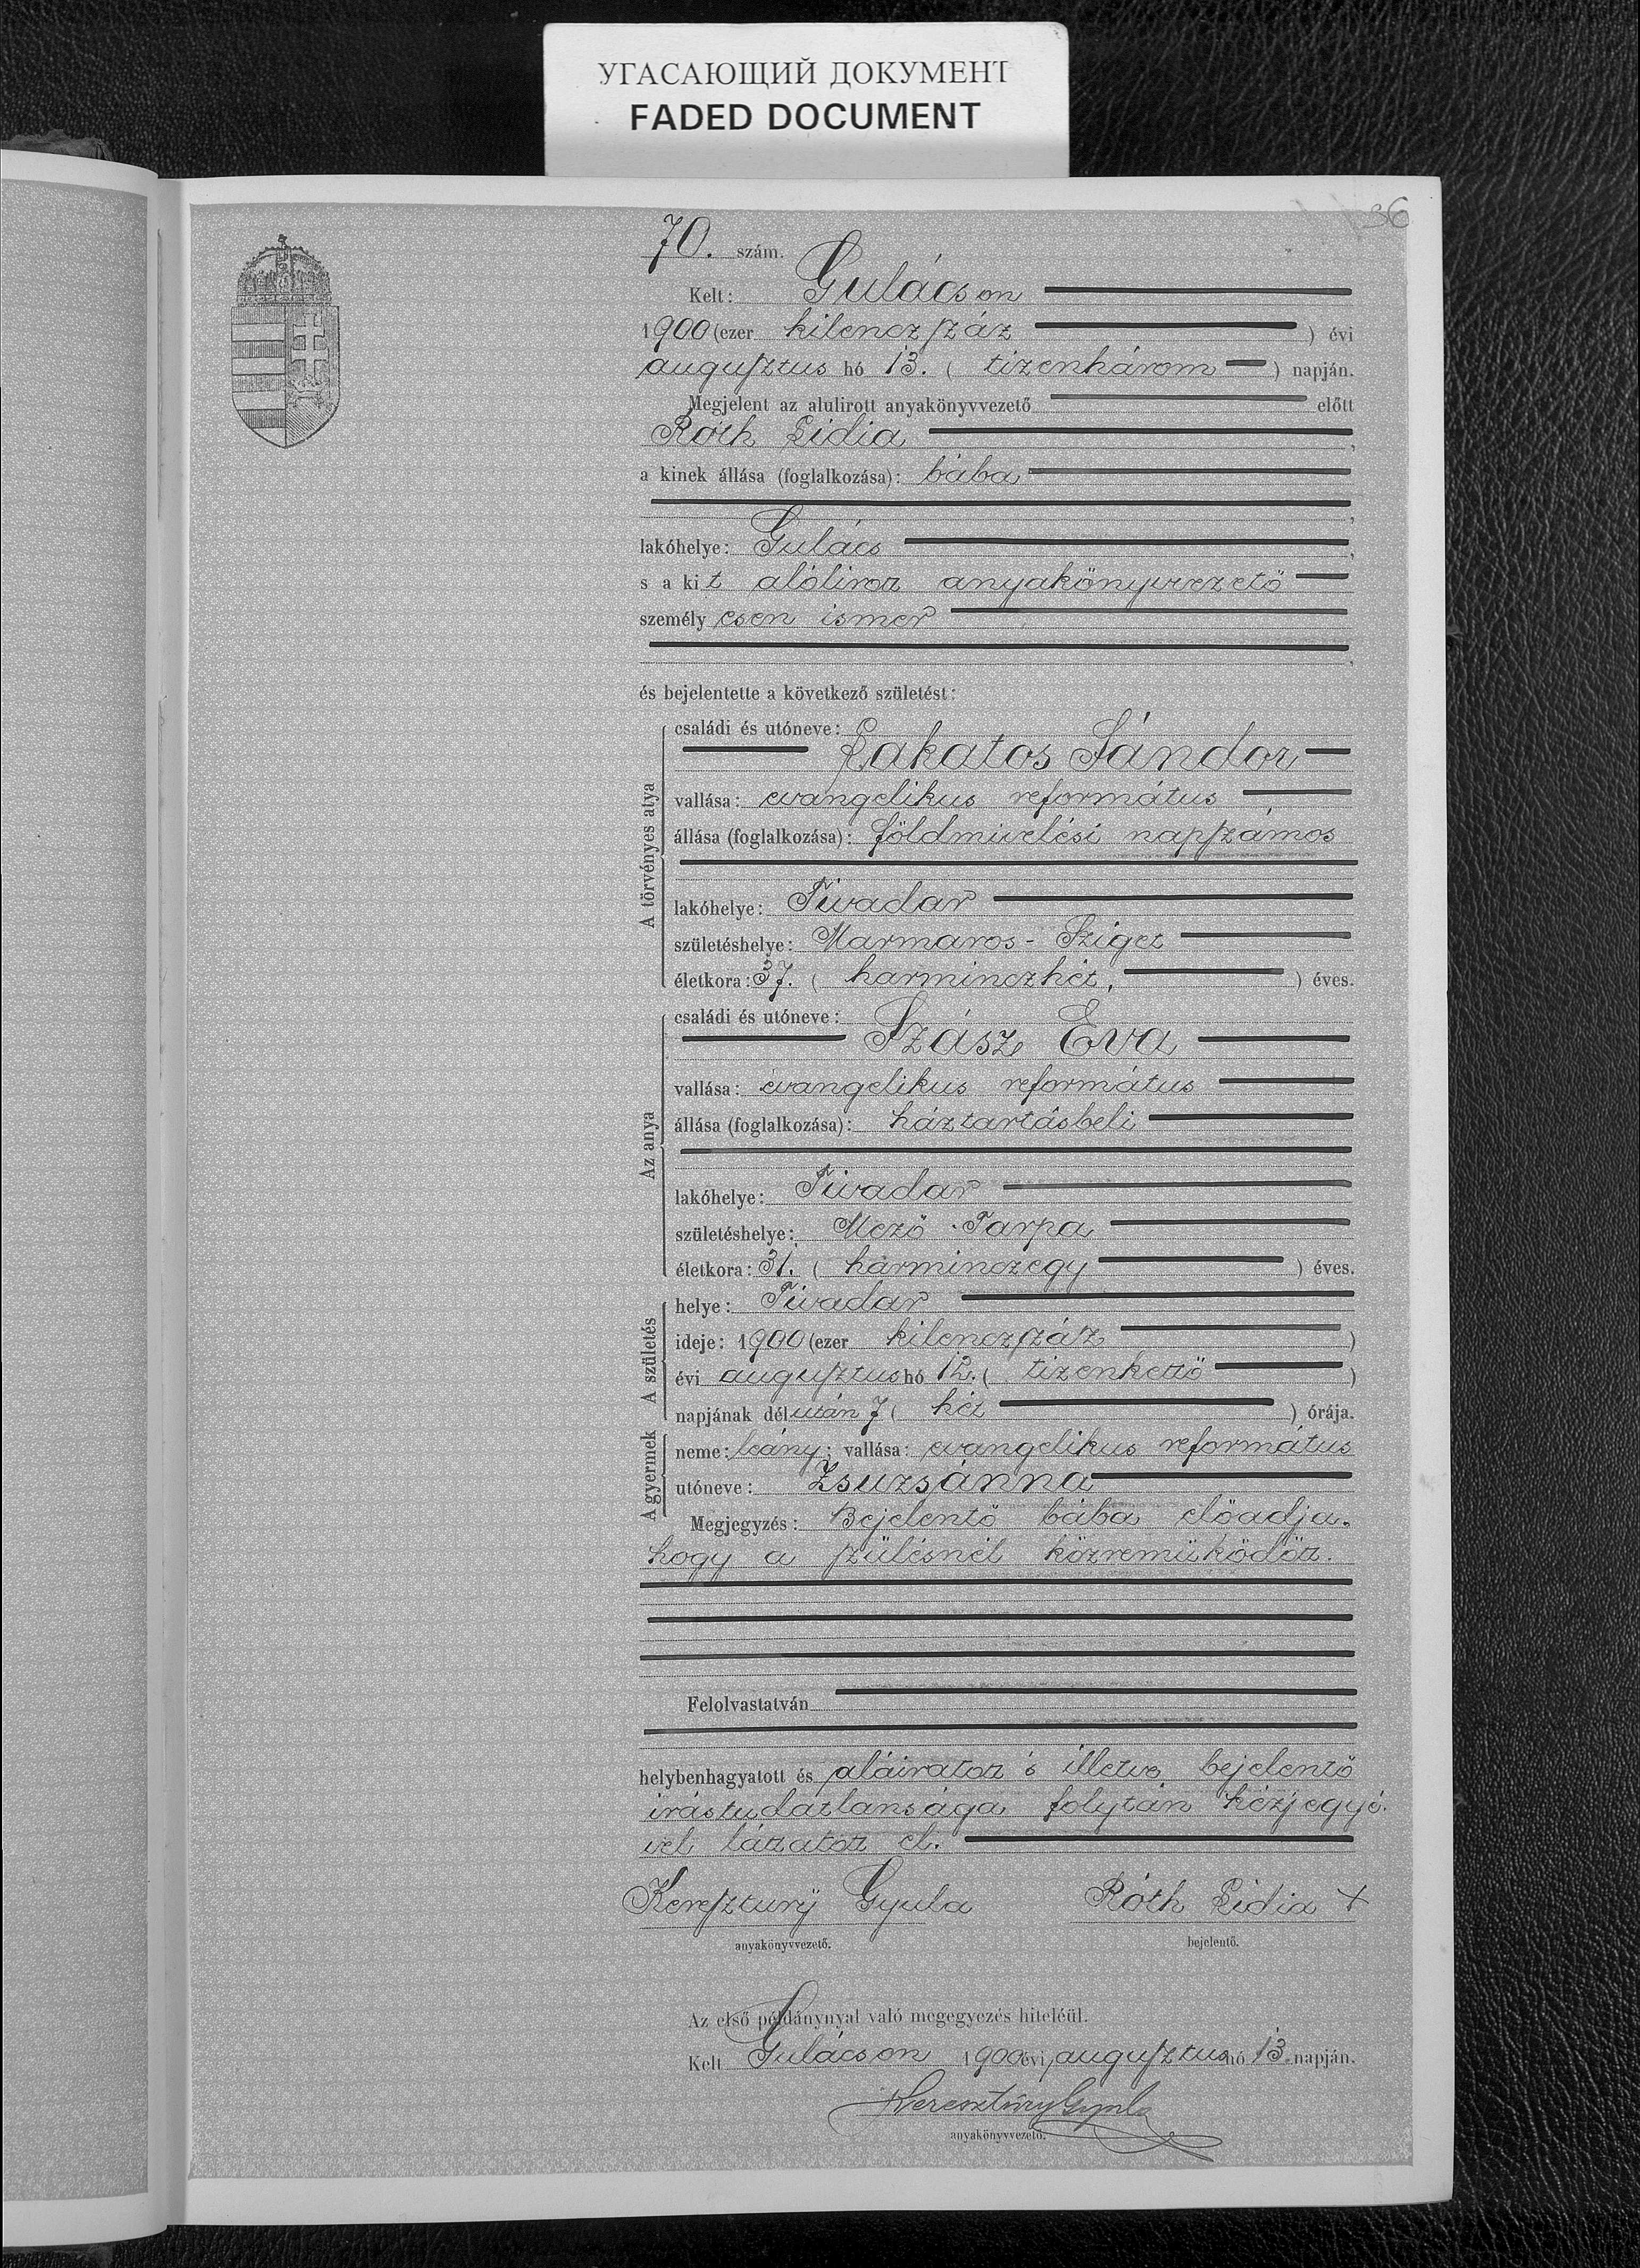 УГАСАЮЩИЙ ДОКУМЕНТ
FADED DOCUMENT
36
70. szám.
Kelt: Gulácson
1900 (ezer kilenczszáz ) évi
augusztus hó 13. ( tizenhárom ) napján.
Megjelent az alulirott anyakönyvvezető előtt
Róth Lidia ,
a kinek állása (foglalkozása): bába
,
lakóhelye: Gulács ,
s a kit alólirott anyakönyvvezető
személyesen ismer
,
és bejelentette a következő születést:
A törvényes atya
családi és utóneve:
Lakatos Sándor
vallása: evangelikus református
állása (foglalkozása): földmivelési napszámos
lakóhelye: Tivadar
születéshelye: Marmaros-Sziget
életkora: 37. ( harminczhét, ) éves.
Az anya
családi és utóneve:
Szász Éva
vallása: evangelikus református
állása (foglalkozása): háztartásbeli
lakóhelye: Tivadar
születéshelye: Mező-Tarpa
életkora: 31. ( harminczegy ) éves.
A születés
helye: Tivadar
ideje: 1900 (ezer kilenczszáz )
évi augusztus hó 12. ( tizenkettő )
napjának délután 7 ( hét ) órája.
A gyermek
neme: leány; vallása: evangelikus református
utóneve: Zsuzsánna
Megjegyzés: Bejelentő bába előadja,
hogy a szülésnél közremüködött.
Felolvastatván
helybenhagyatott és aláiratott s illetve bejelentő
irástudatlansága folytán kézjegyé-
vel láttatott el.
Keresztury Gyula Róth Lidia +
anyakönyvvezető. bejelentő.
Az első példánynyal való megegyezés hiteléül.
Kelt Gulácson 1900 évi augusztus hó 13. napján.
Keresztúry Gyula
anyakönyvvezető.